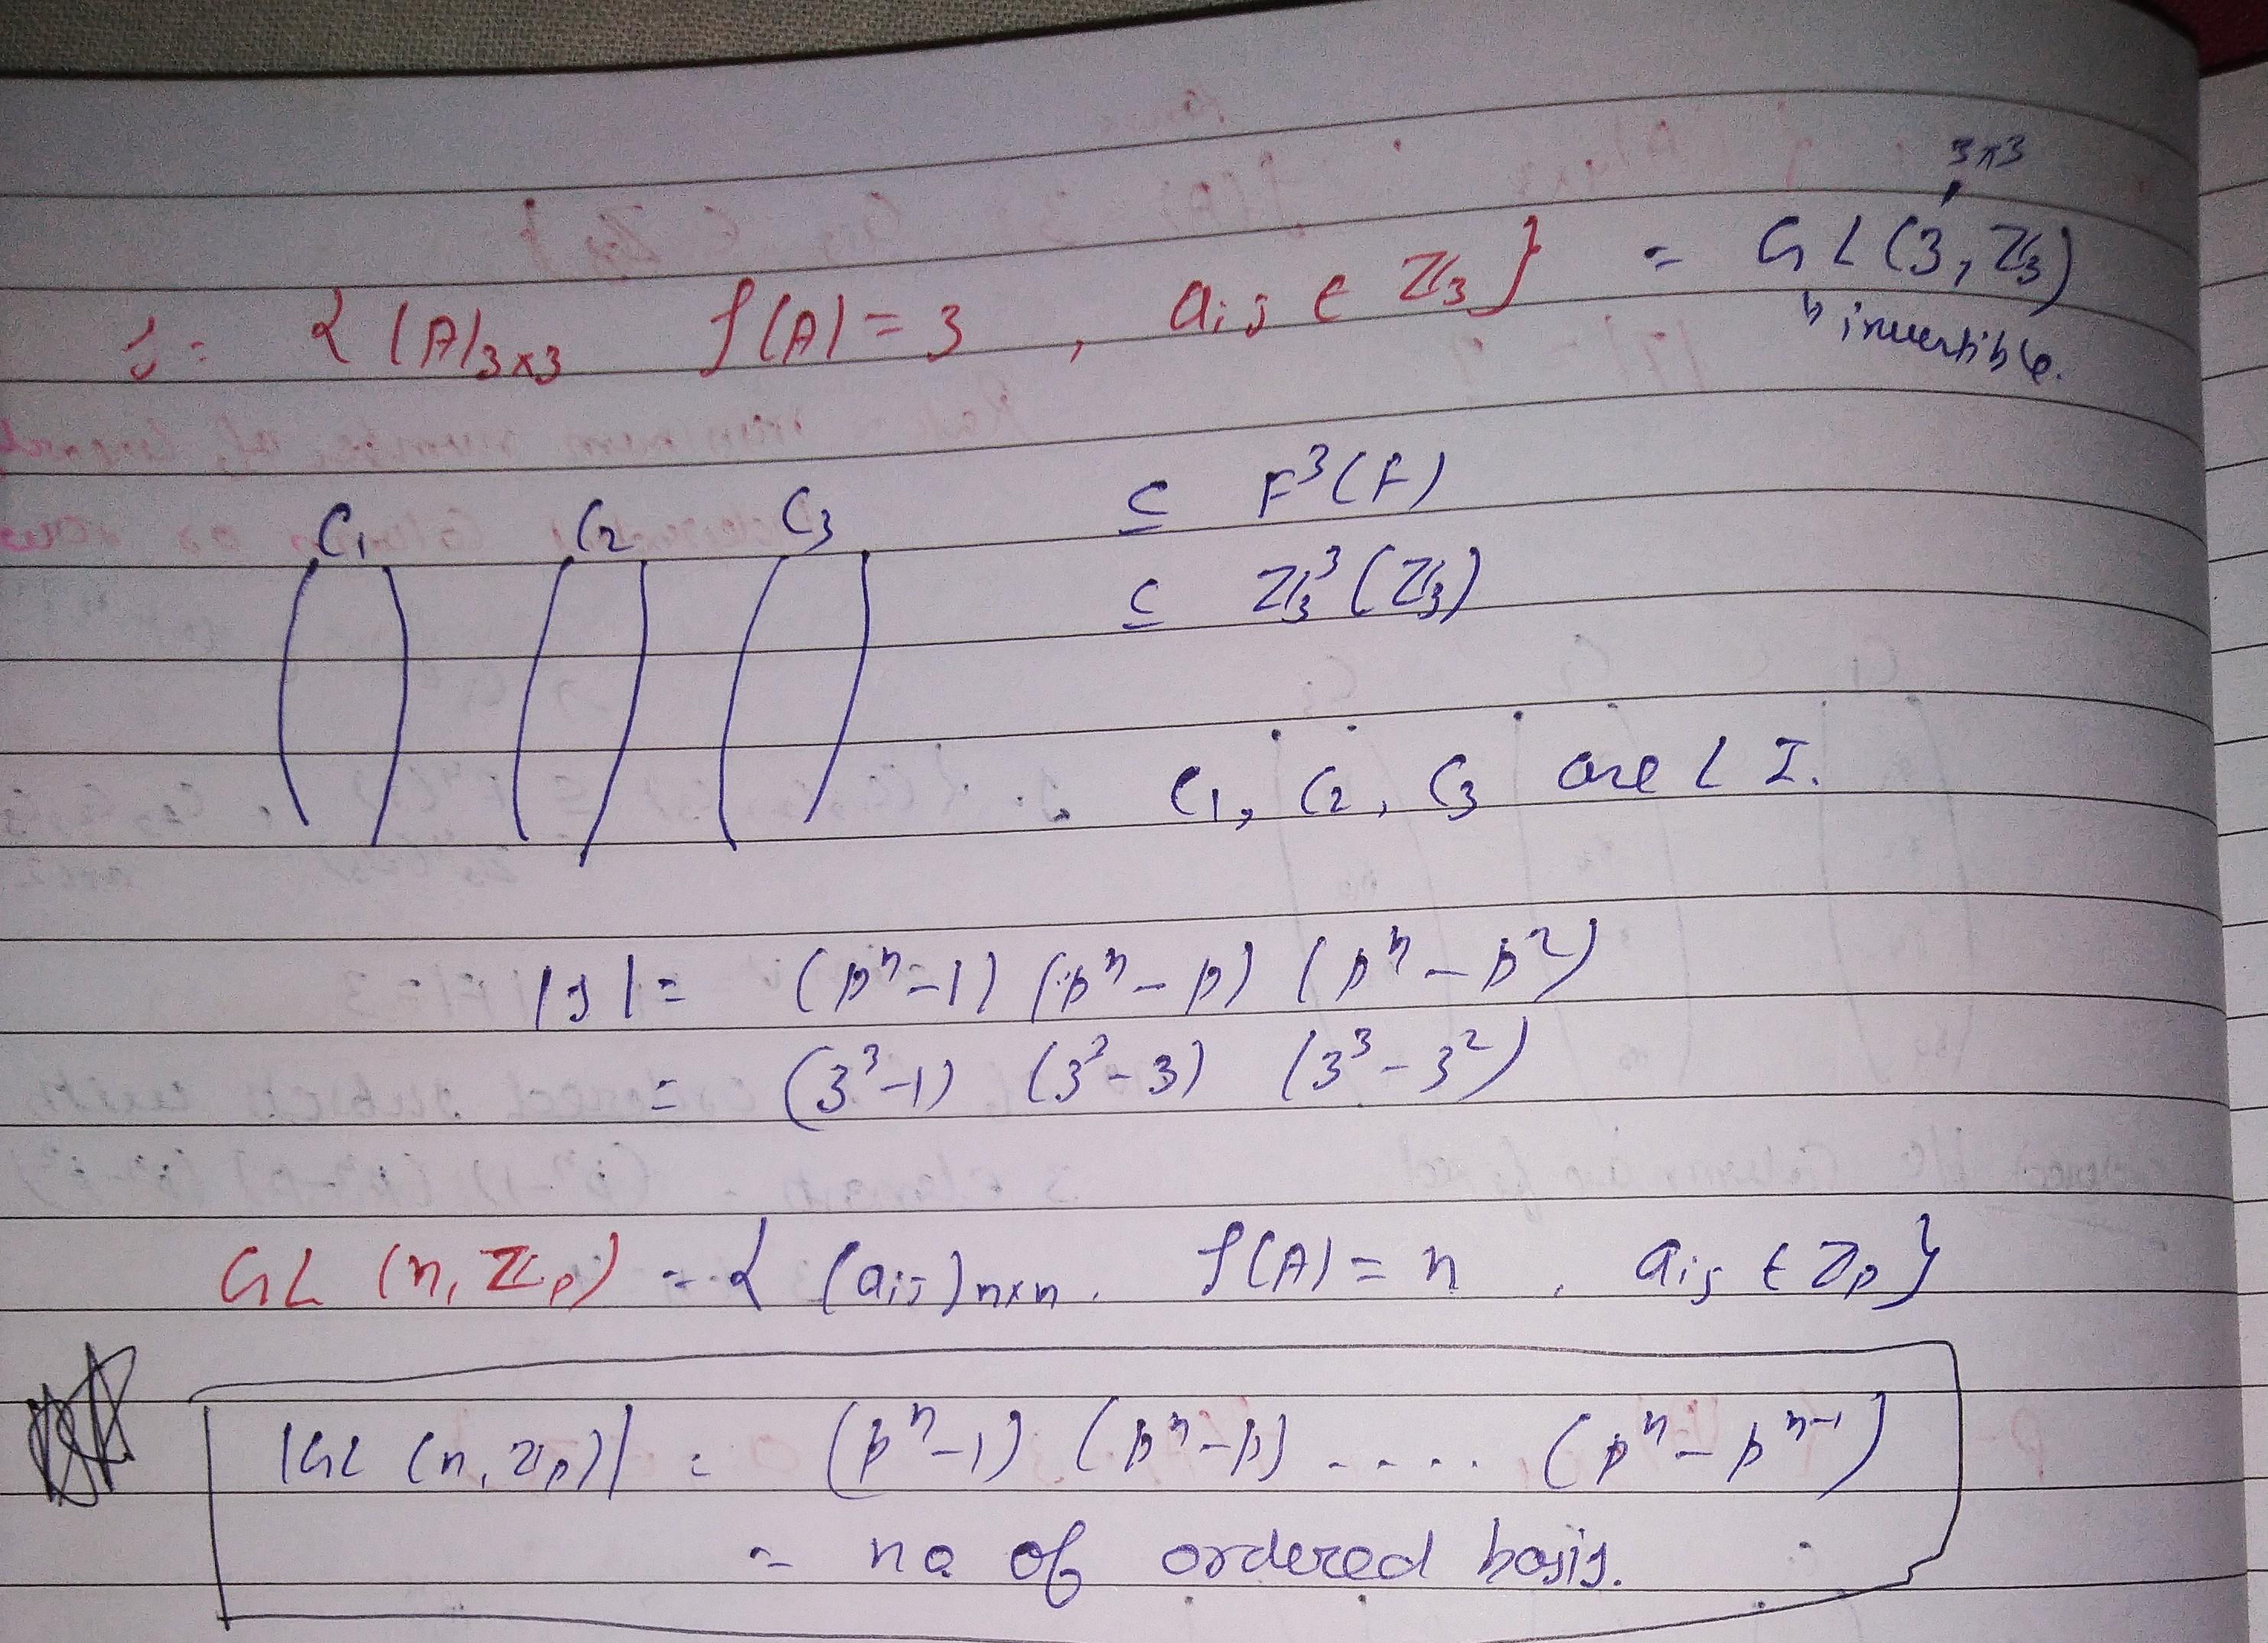 3×3
S = { (A)3×3 ρ(A) = 3 , aij ∈ ℤ3 } = GL(3, ℤ3)
↳ invertible.
C1 C2 C3 ⊆ F³(F)
⊆ ℤ3³(ℤ3)
∴ C1, C2, C3 are L I.
|S| = (pⁿ-1) (pⁿ-p) (pⁿ-p²)
= (3³-1) (3³-3) (3³-3²)
GL (n, ℤp) = { (aij)n×n . ρ(A) = n , aij ∈ ℤp }
|GL (n, ℤp)| = (pⁿ-1) (pⁿ-p) ..... (pⁿ-pⁿ⁻¹)
= no of ordered basis.